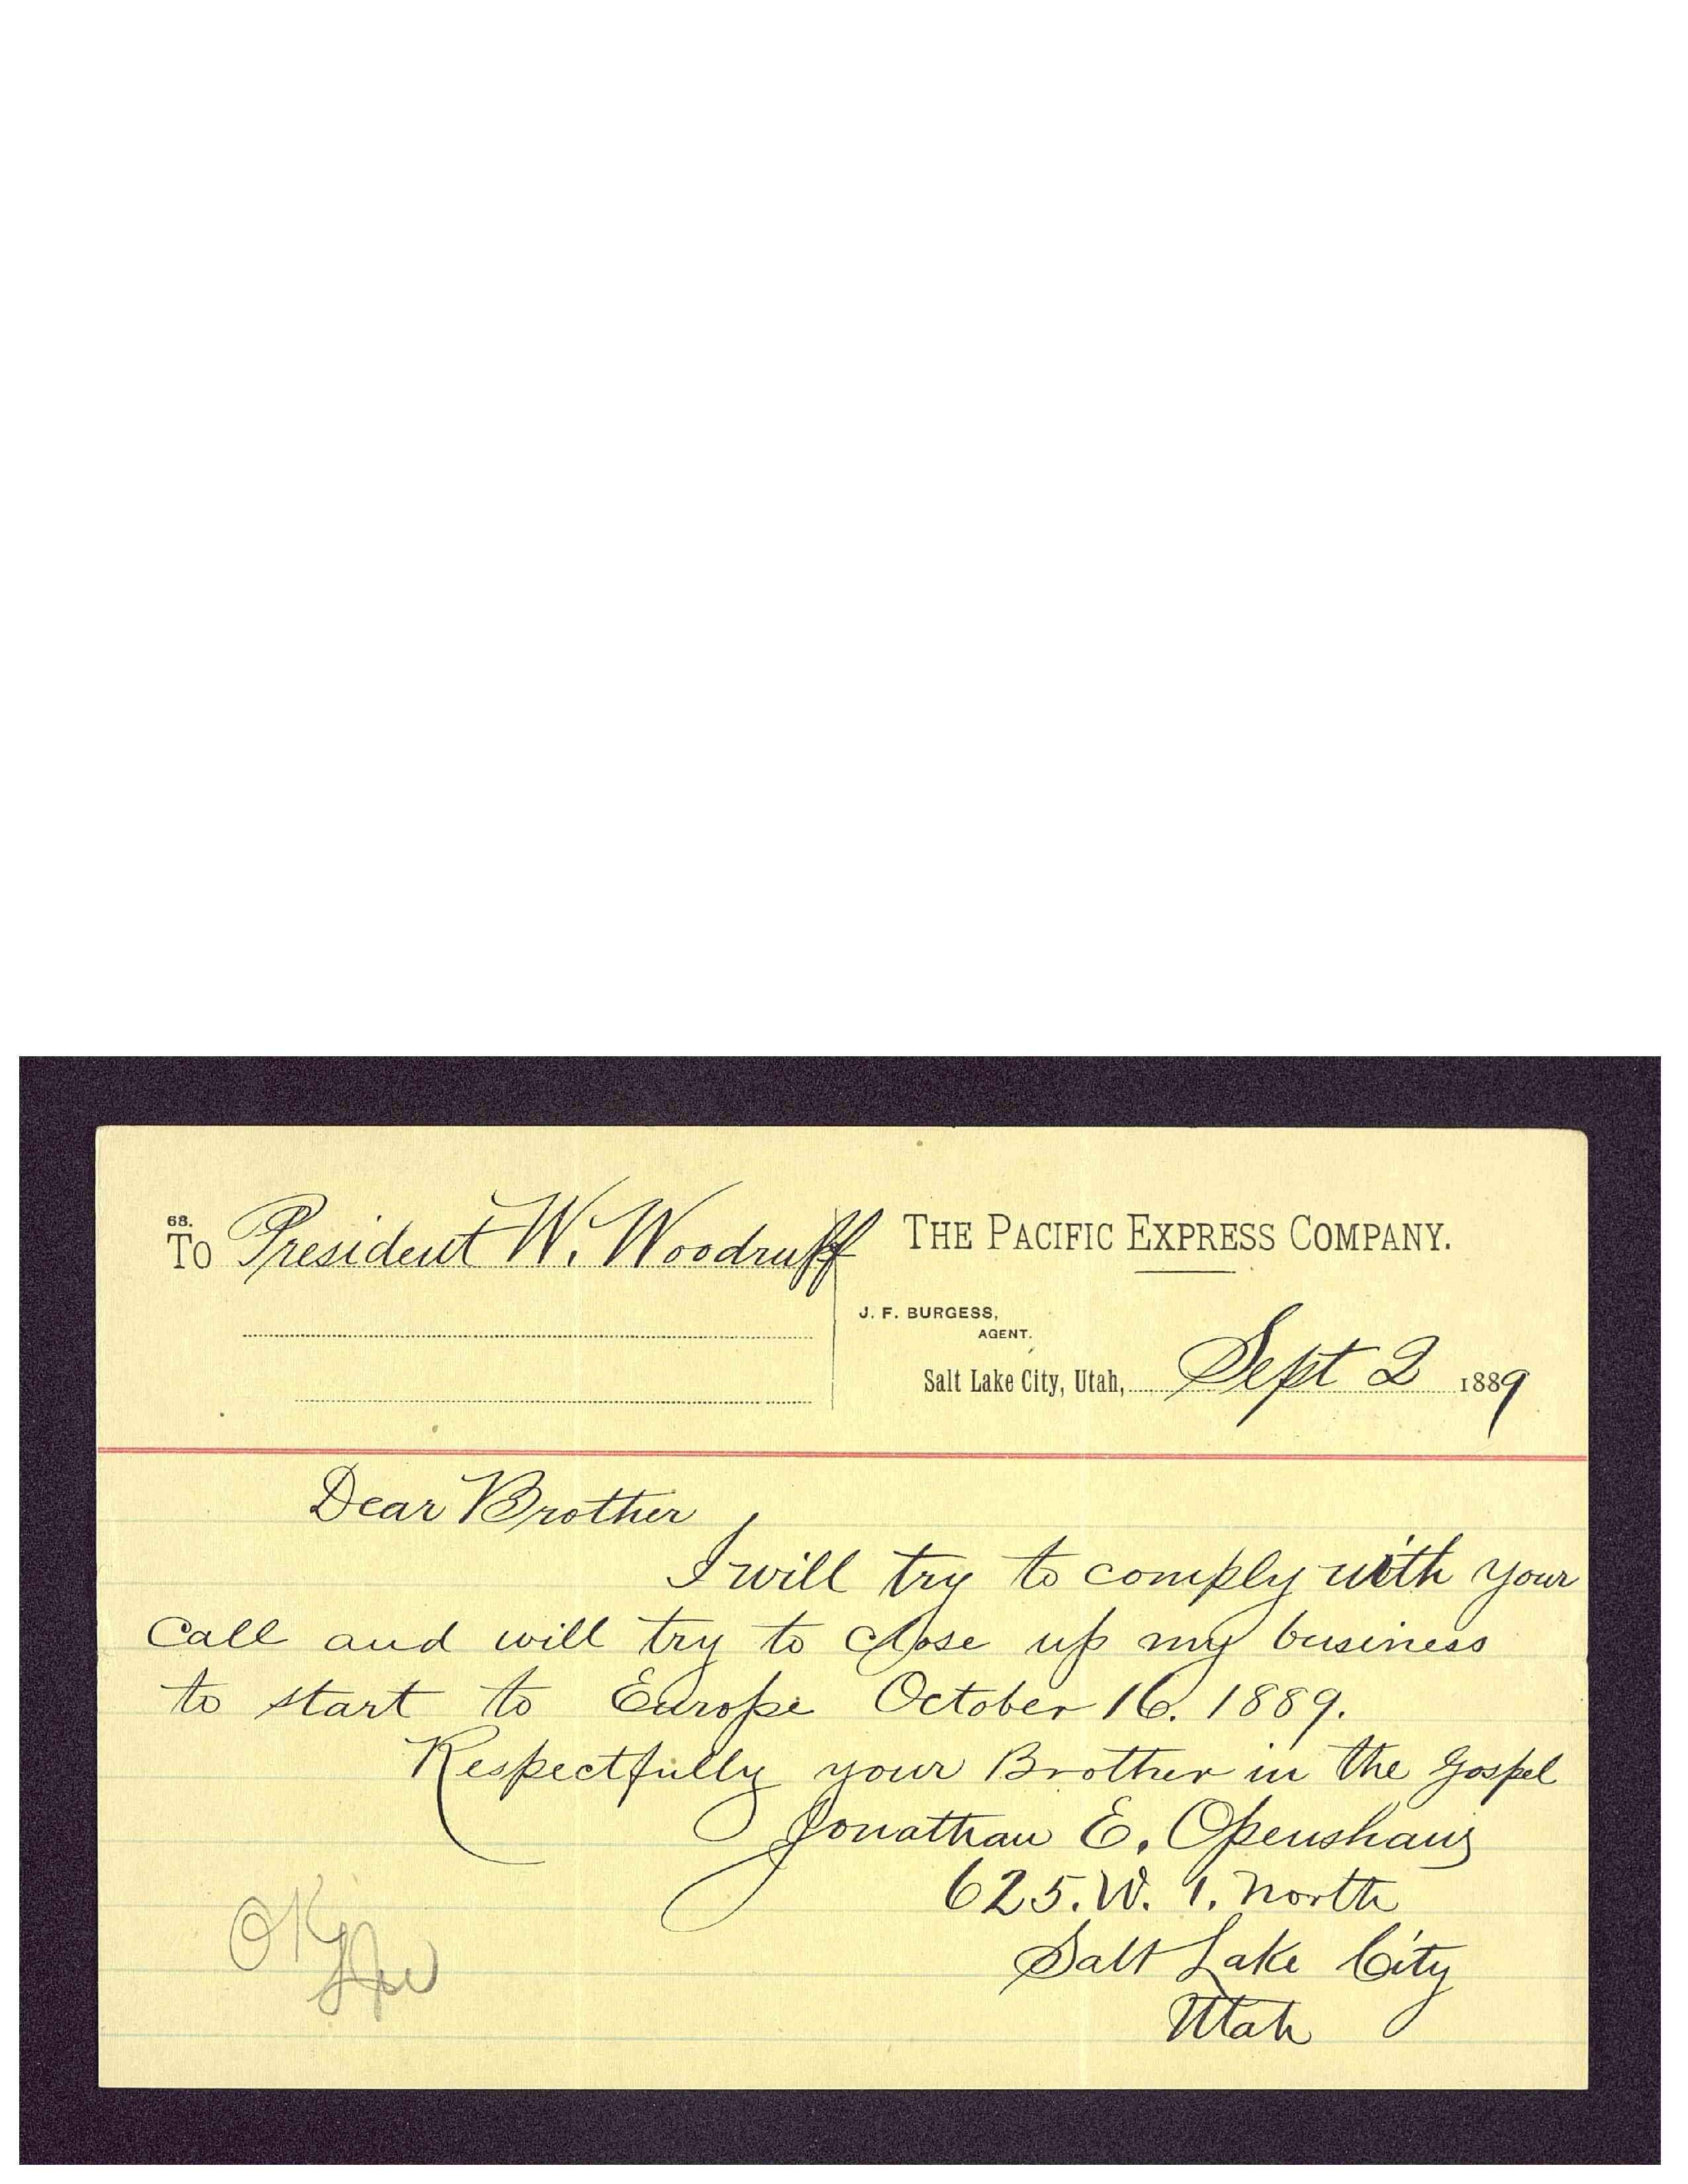 68.
To President W. Woodruff
THE PACIFIC EXPRESS COMPANY.
J. F. BURGESS,
AGENT.
Salt Lake City, Utah, Sept 2 1889
Dear Brother
I will try to comply with your
call and will try to close up my business
to start to Europe October 16. 1889.
Respectfully your Brother in the Gospel
Jonathan E. Openshaw
625. W. 1. North
Salt Lake City
Utah
OK